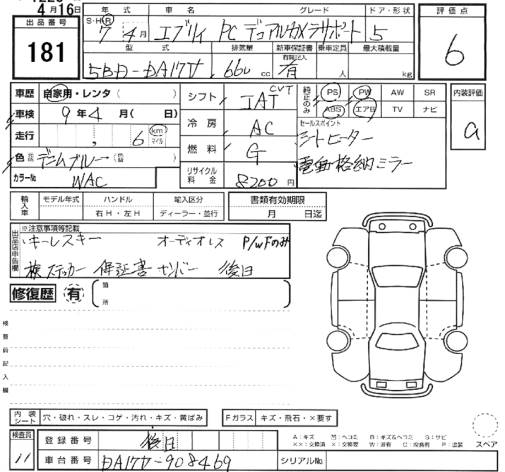 4月16日
出品番号 181
年式 車名 グレード ドア・形状 評価点
S・H・R 7年 4月 エブリイ PC デュアルカメラサポート 5 6
型式 排気量 新車保証書 乗車定員 最大積載量
5BD-DA17V 660 cc 有 人 kg
車歴 自家用・レンタ( )
シフト IAT CVT
純正のみ PS PW AW SR
ABS エアB TV ナビ
内装評価 a
車検 9年 4月 ( 日)
冷房 AC
セールスポイント
シートヒーター
走行 6 km マイル
燃料 G
電動格納ミラー
色 デニムブルー
リサイクル料金 8200円
カラーNo. WAC
輸入車 モデル年式 ハンドル 輸入区分 書類有効期限
右H・左H ディーラー・並行 月 日迄
※注意事項等記載
出品店申告欄
キーレスキー オーディオレス P/WFのみ
検ステッカー 保証書 ナンバー 後日
修復歴 有 箇所
検査員記入欄
内装シート 穴・破れ・スレ・コゲ・汚れ・キズ・黄ばみ Fガラス キズ・飛石・×要す
検査員 11
登録番号 後日
スペア
車台番号 DA17V-908469 シリアルNo.